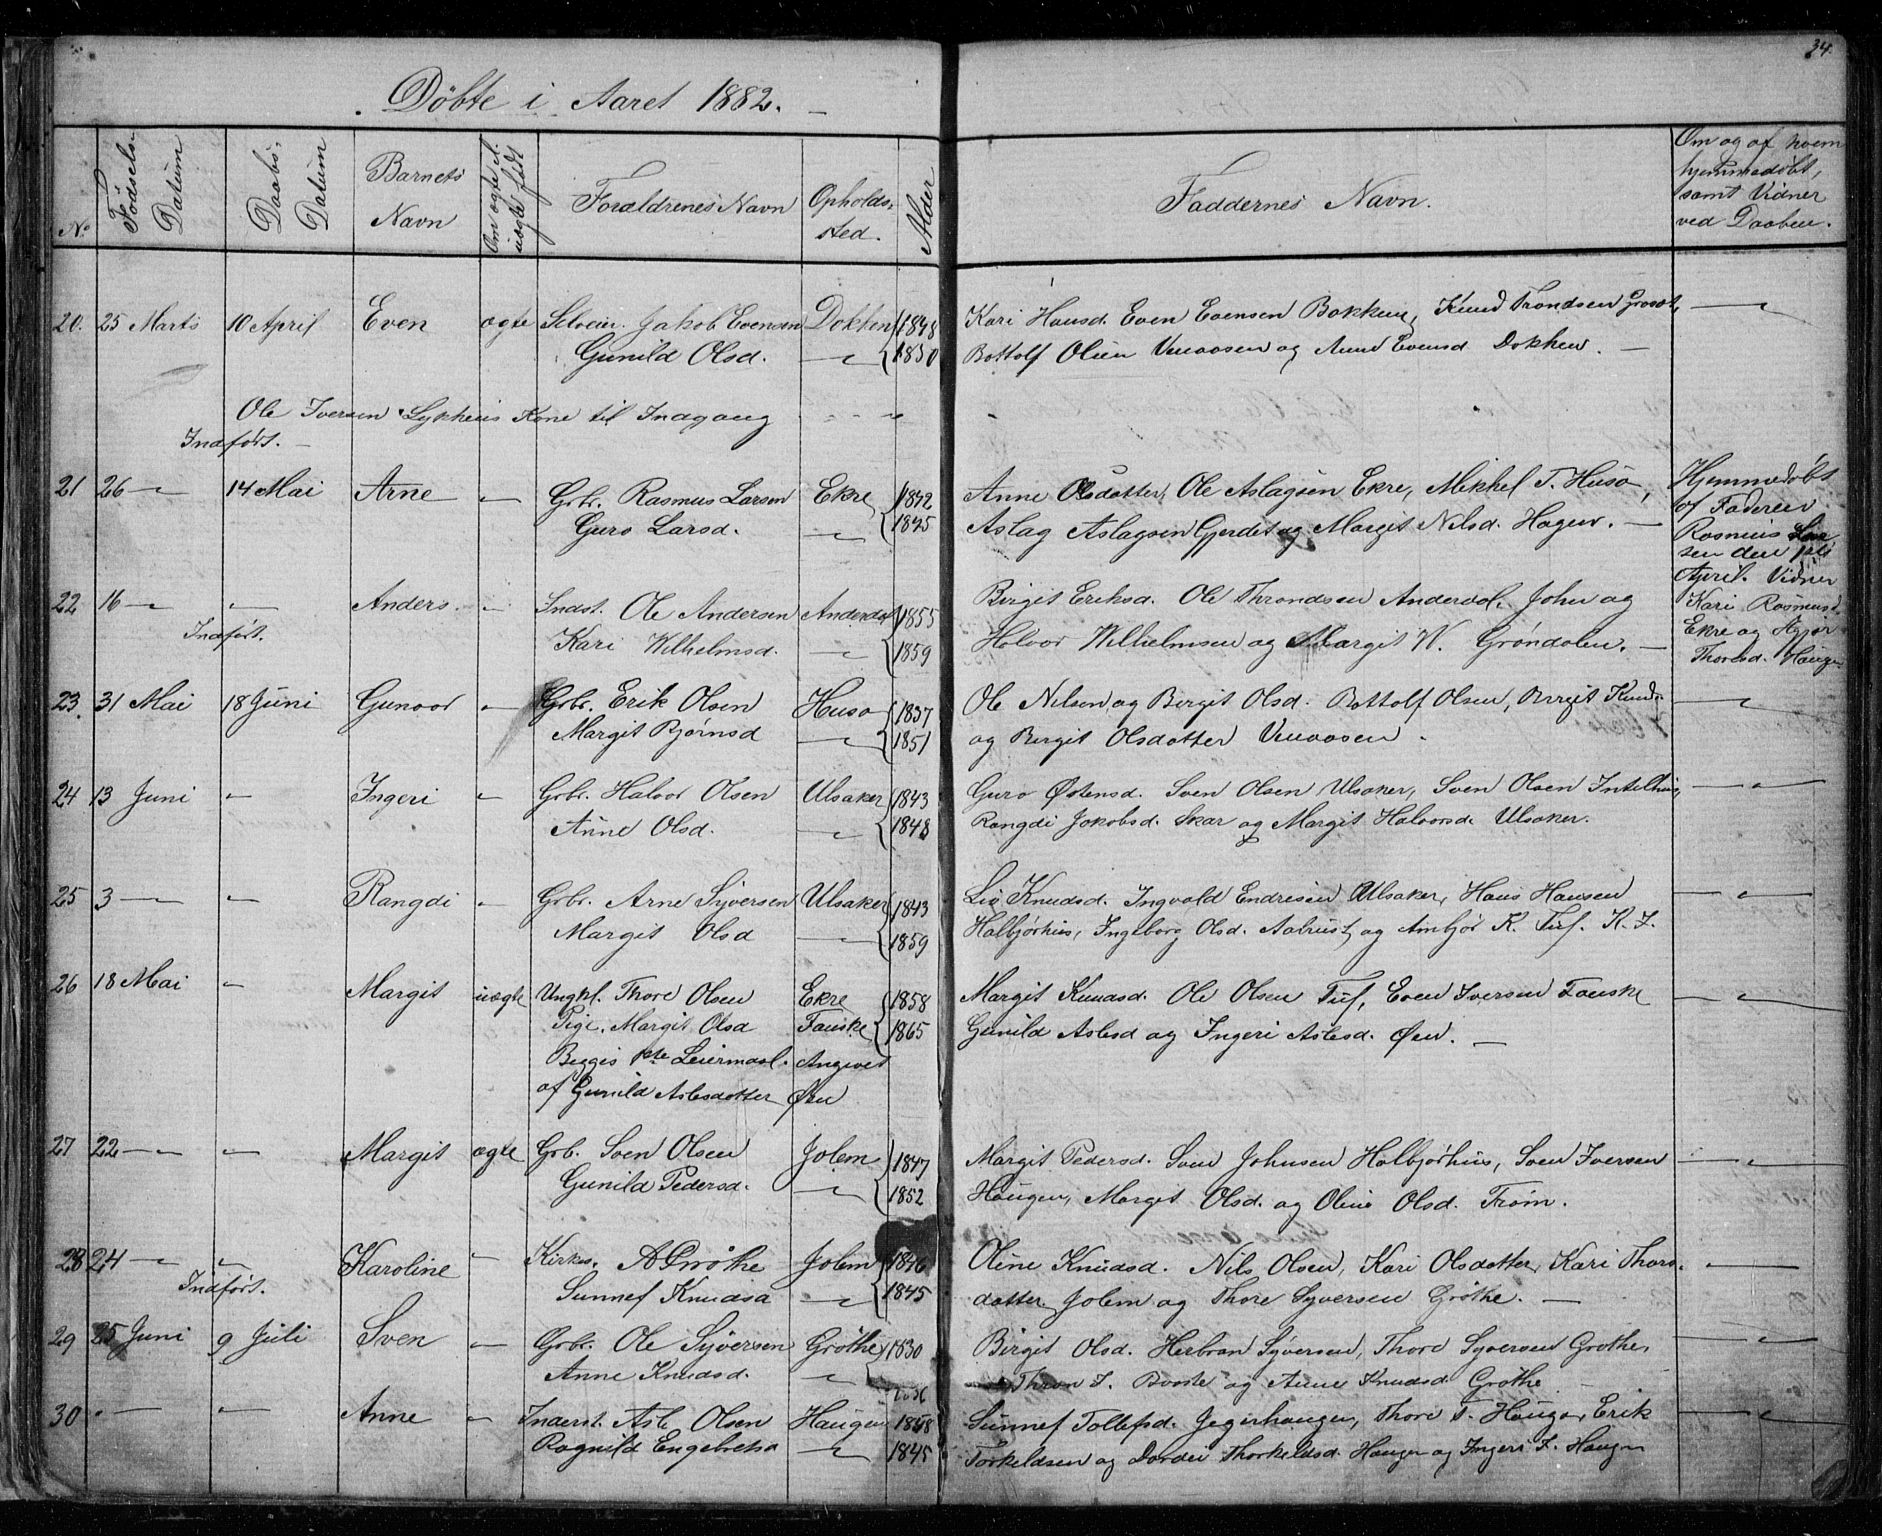 34.
Døbte i Aaret 1882.
No. Fødsels Datum Daabs Datum Barnets Navn Om ægte el. uægte født Forældrenes Navn Opholdssted. Alder Faddernes Navn. Om og af hvem hjemmedøbt, samt Vidner ved Daaben.
20. 25 Marts 10 April Even ægte Selveier. Jakob Evensen Dokken 1848 Kari Hansd. Even Evensen Bakken, Knud Trondsen
Gunild Olsd. 1850 Bottolf Olsen og Evensd Dokken.
Ole Iversen Lykkens Kone til Indgang
Indført.
21 26 14 Mai Arne Grbr. Rasmus Larsen Ekre 1842 Anne Olsdatter, Ole Aslagsen Ekre, Mikkel T. Huso, Hjemmedøbt
af Faderen
Guro Larsd. 1845 Aslag Aslagsen Gjerdet og Margit Nilsd. Hagen. Rasmus Lar
sen den
April. Vidner
22 16 Anders. Indst. Ole Andersen Anderdal 1855 Birgit Eriksd. Ole Throndsen Anderdal, John og Kari Rasmusd.
Indført. Kari Wilhelmsd. 1859 Halvor Wilhelmsen og Margit W. Grøndalen. Ekre og
Thoresd. Haugen
23. 31 Mai 18 Juni Gunvor Grbr. Erik Olsen Huso 1837 Ole Nilsen og Birgit Olsd. Bottolf Olsen, Knuds
Margit Bjørnsd 1851 og Birgit Olsdatter
24. 13 Juni Ingeri Grbr. Halvor Olsen Ulsaker 1843 Guro Østensd. Sven Olsen Ulsaker, Sven Olsen Intelhus,
Anne Olsd. 1848 Rangdi Jakobsd. Skar og Margit Halvorsd. Ulsaker.
25 3 Rangdi Grbr. Arne Syversen Ulsaker 1843 Liv Knudsd. Ingvald Endresen Ulsaker, Hans Hansen
Margit Olsd 1859 Halbjørhus, Ingeborg Olsd. og Ambjør K. Tuf. K. I.
26 18 Mai Margit uægte Ungkl. Thore Olsen Ekre 1858 Margit Knudsd. Ole Olsen Tuf, Even Iversen Fauske
Pige. Margit Olsd Fauske 1865 Gunild Aslesd og Ingeri Aslesd. Øen.
Begges 1ste Leiermaal. Angivet
af Gunild Aslesdatter Øen
27 22 Margit ægte Grb. Sven Olsen Jolem 1847 Margit Pedersd. Sven Johnsen Halbjørhus, Sven Iversen
Gunild Pedersd. 1852 Haugen, Margit Olsd. og Oline Olsd. Trøim.
28 24 Karoline Kirkes. A Grøthe Jolem 1846 Oline Knudsd. Nils Olsen, Kari Olsdatter, Kari Thors
Indført. Sunnef Knudsd 1845 datter Jolem og Thore Syversen Grøthe.
29 25 Juni 9 Juli Sven Grbr. Ole Syversen Grøthe 1830 Birgit Olsd. Herbran Syversen, Thore Syversen Grøthe,
Anne Knudsd. og Anne Knudsd Grøthe
30 Anne Inderst. Asle Olsen Haugen 1848 Sunnef Tollefsd. Jegerhaugen, Thore T. Haugen, Erik
Ragnild Engebretsd 1845 Torkeldsen og Dordei Thorkeldsd. Haugen og Ingeri T. Haugen